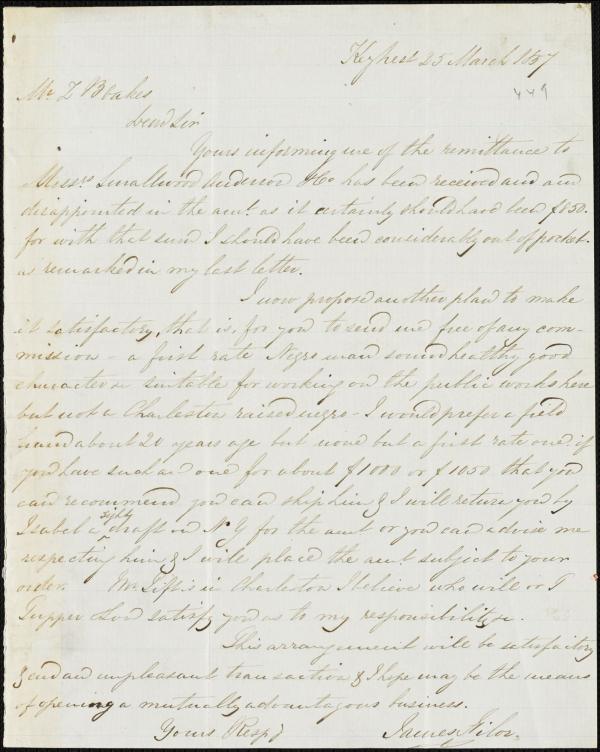 Key West 25 March 1857
449
Mr Z B Oakes
Dear Sir
Yours informing me of the remittance to
Messrs Smallwood Anderson & Co has been received and am
disappointed in the amt. as it certainly should have been $850.
for with that sum I should have been considerably out of pocket.
as remarked in my last letter.
I now propose another plan to make
it satisfactory, that is, for you to send me free of any com-
mission - a first rate Negro man sound healthy good
character & suitable for working on the public works here
but not a Charleston raised negro - I would prefer a field
hand about 20 years age but none but a first rate one. if
you have such an one for about $1000 or $1050 that you
can recommend you can ship him & I will return you by
sight
Isabel a draft on N.Y for the amt or you can advise me
respecting him & I will place the amt subject to your
order. Mr Tift is in Charleston I believe who will or T
Tupper & Son satisfy you as to my responsibility.
This arrangement will be satisfactory
& end an unpleasant transaction & I hope may be the means
of opening a mutually advantageous business.
Yours Respy
James Filor